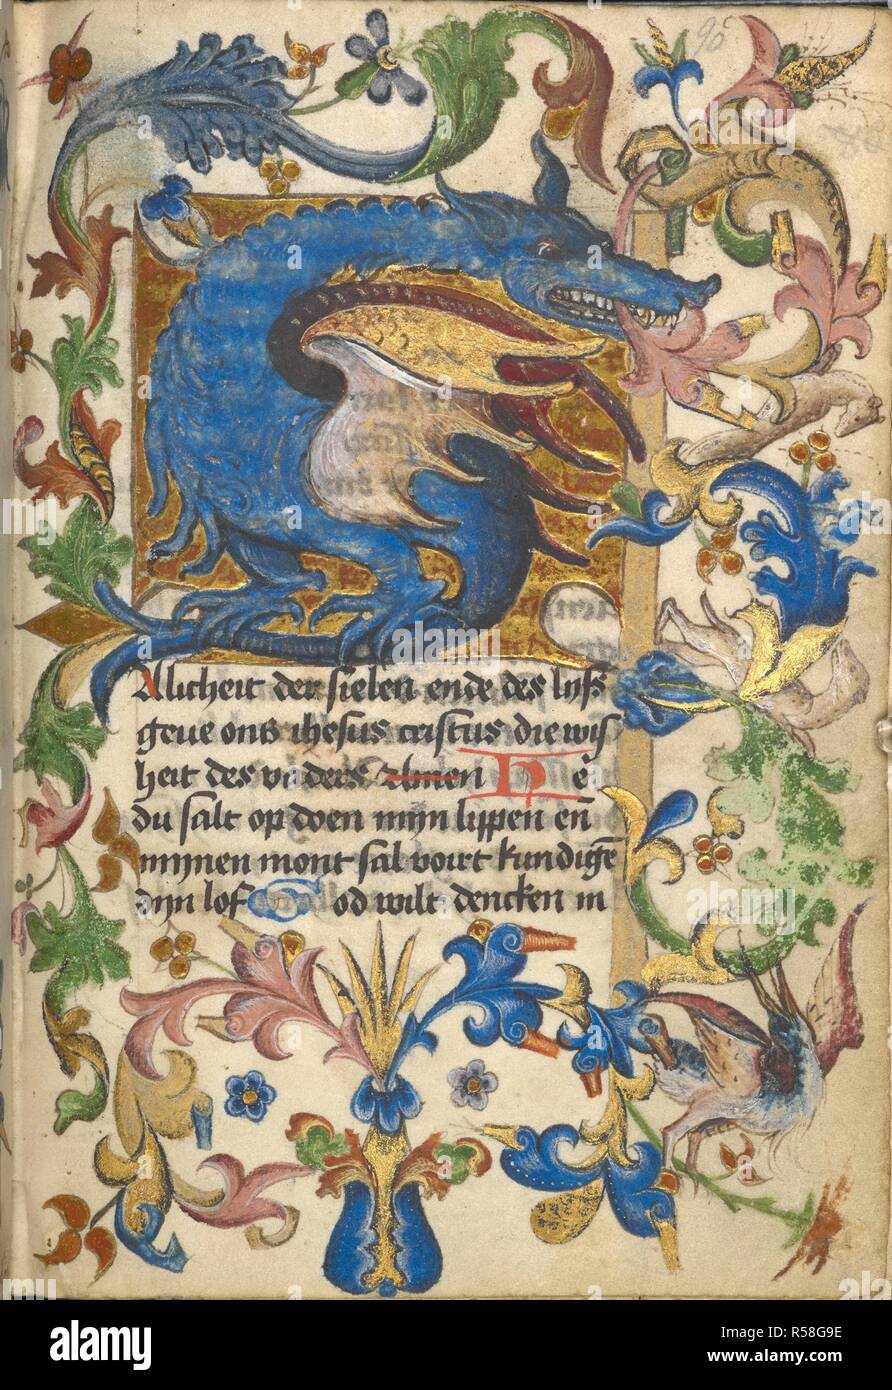 90
Alicheit der sielen ende des lyfs
geue ons ihesus cristus die wijs
heit des vaders Amen He
du salt op doen mijn lippen en̄
mijnen mont sal voirt kundigē
dijn lof God wilt dencken in
alamy
Image ID: R58G9E
www.alamy.com